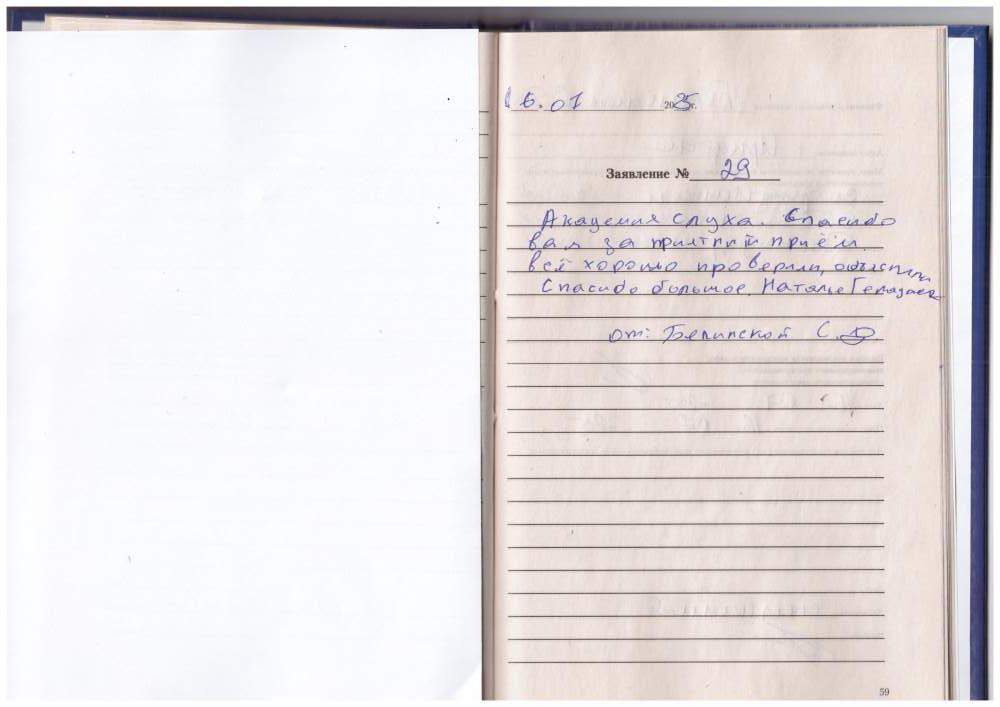 16.01 2025г.
Заявление № 29
Академия слуха. Спасибо
вам за приятный приём.
всё хорошо проверили, объяснили
Спасибо большое. Наталье
от: Белинской С.
59